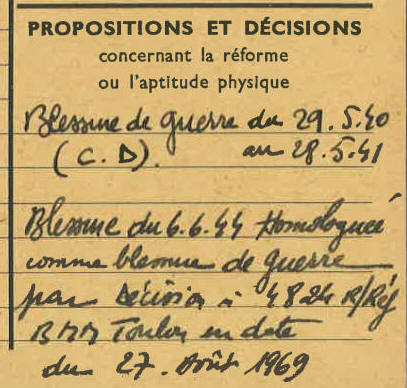 PROPOSITIONS ET DÉCISIONS
concernant la réforme
ou l'aptitude physique
Blessure de guerre du 29.5.40
(C.D). au 28.5.41
Blessure du 6.6.44 Homologuée
comme blessure de guerre
par décision n° 4824 R/Réf
BMM Toulon en date
du 27. Août 1969